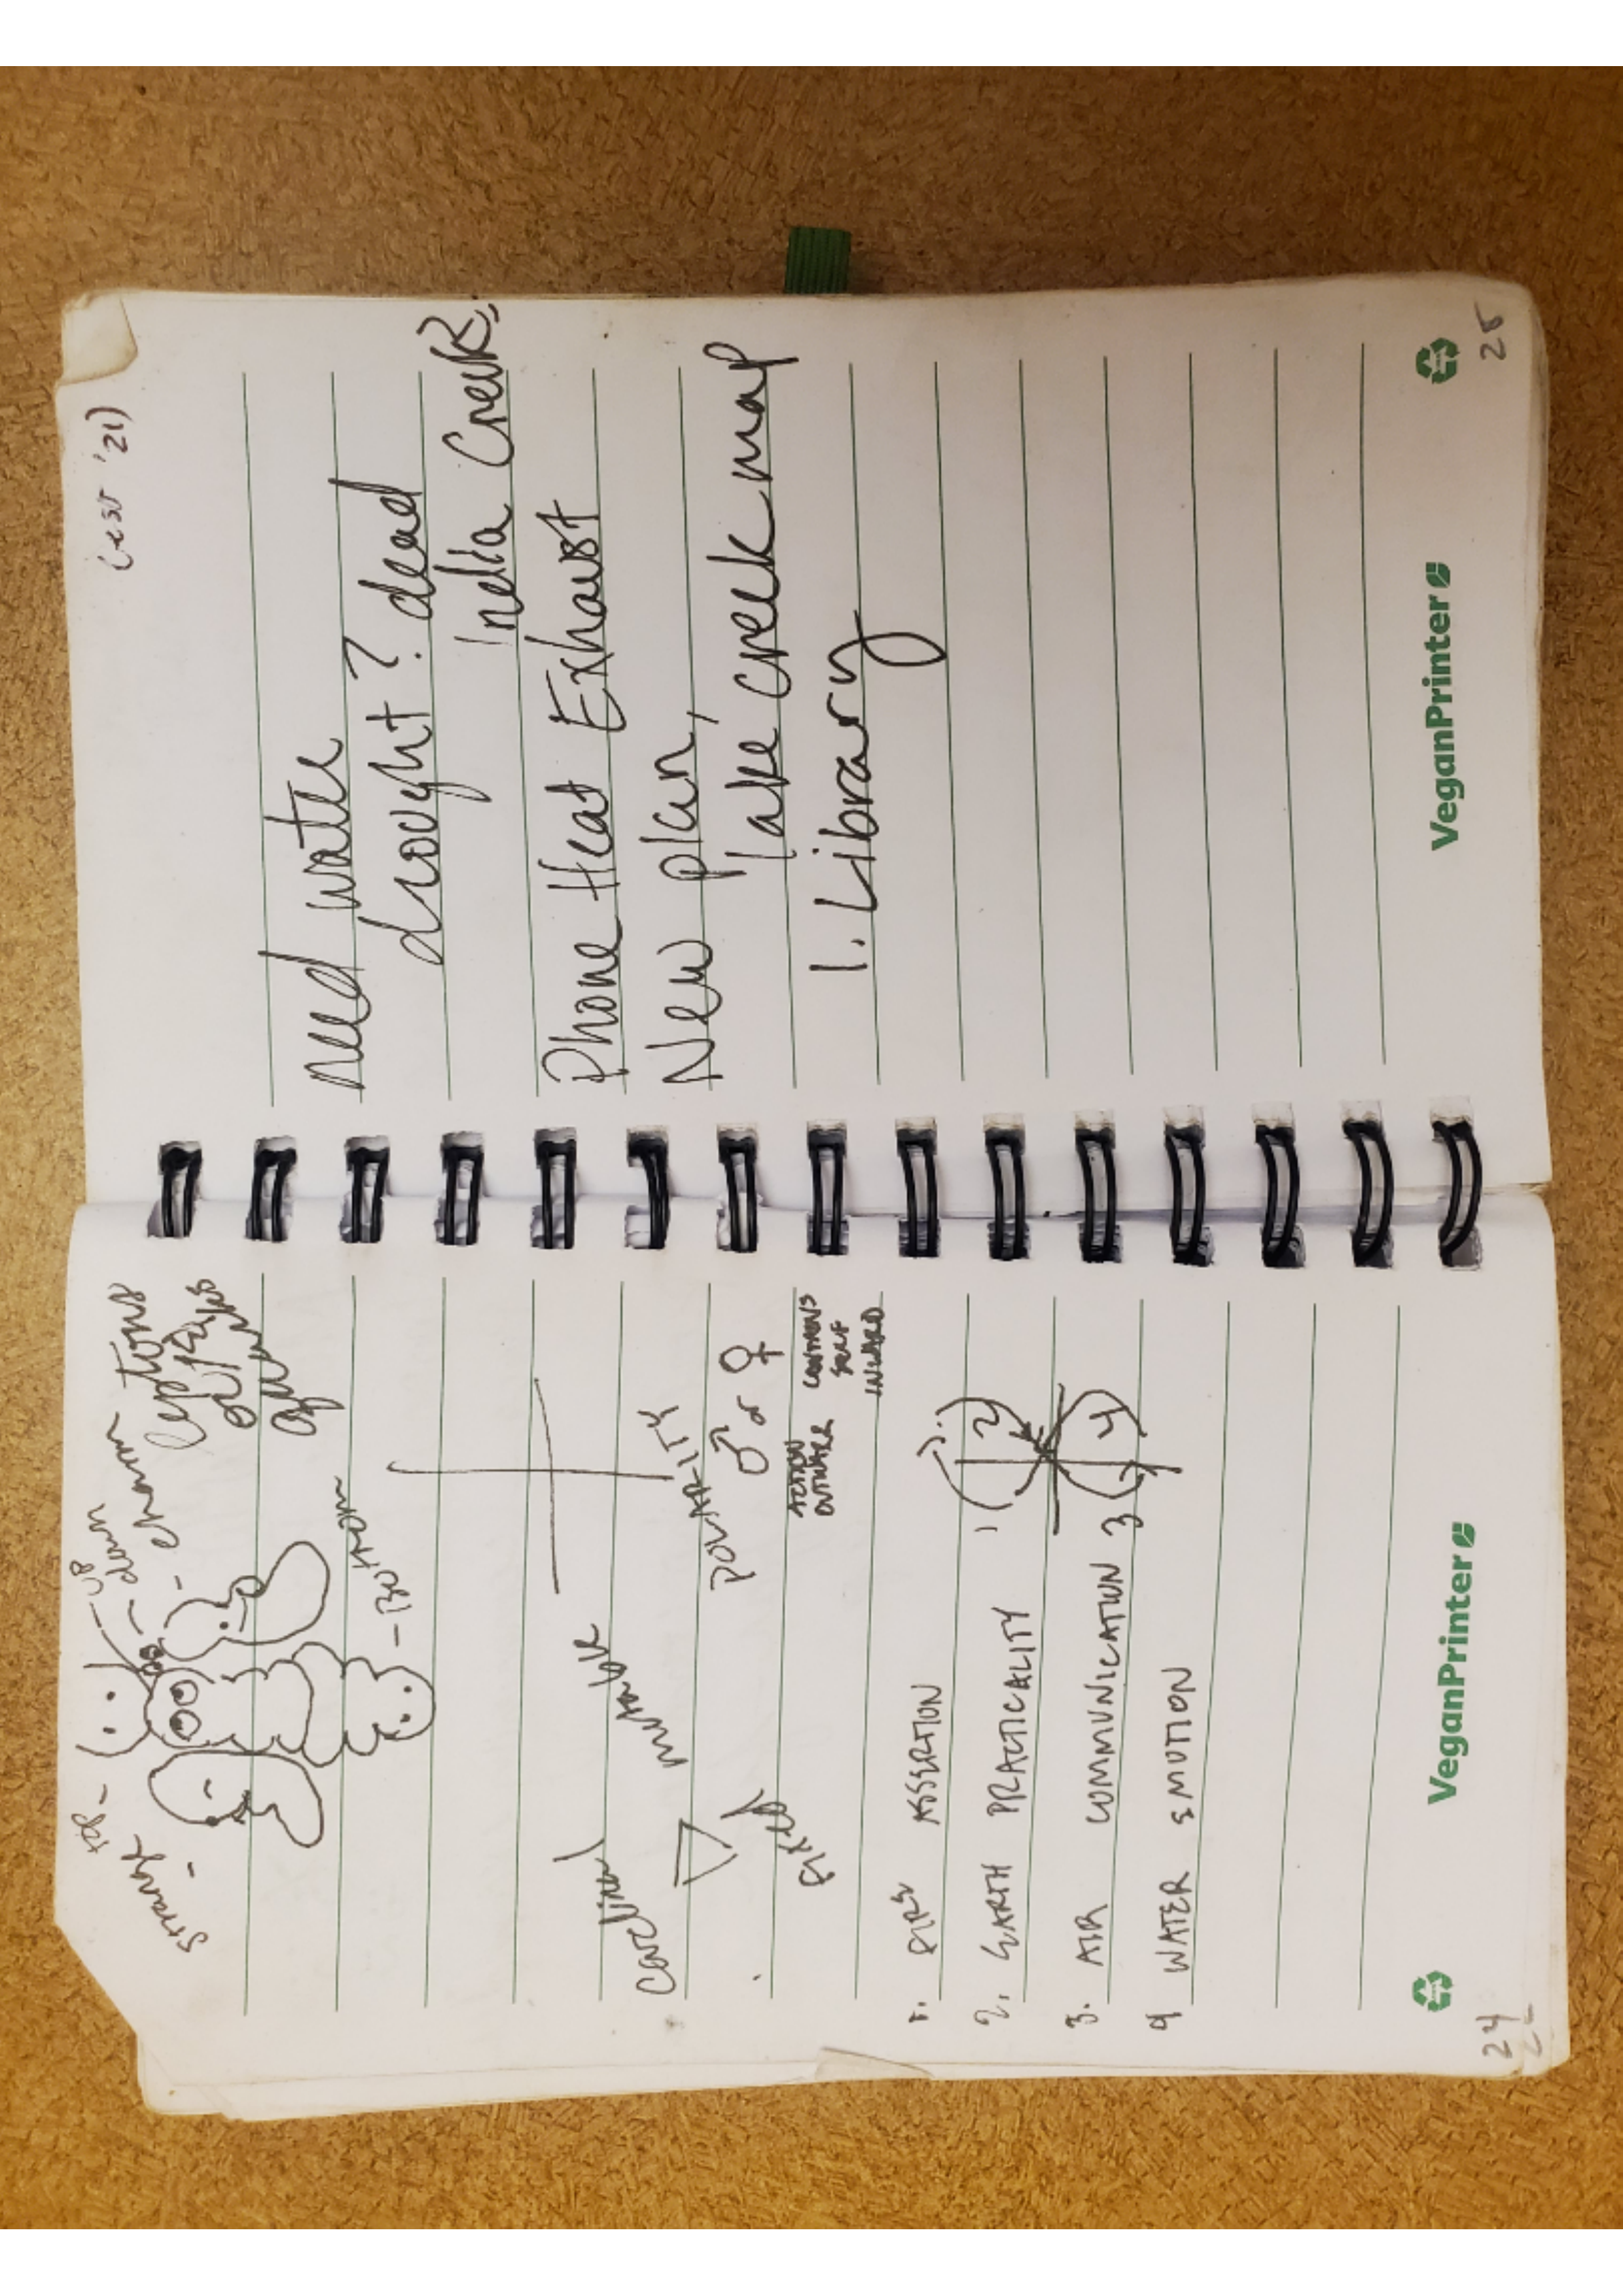 top -
- up
- down
strange -
- charm
leptons
- Bottom
cardinal
mutable
fixed
POLARITY
♂ & ♀
ACTION
OUTWARD
CONTAINS
SELF
INWARD
1. FIRE ASSERTION
2. EARTH PRACTICALITY
3. AIR COMMUNICATION
4 WATER EMOTION
1 2
3 4
VeganPrinter
24
(est '21)
need water
drought? dead
Phone Heat Exhaust
New plan,
lake creek map
1. Library
VeganPrinter
25